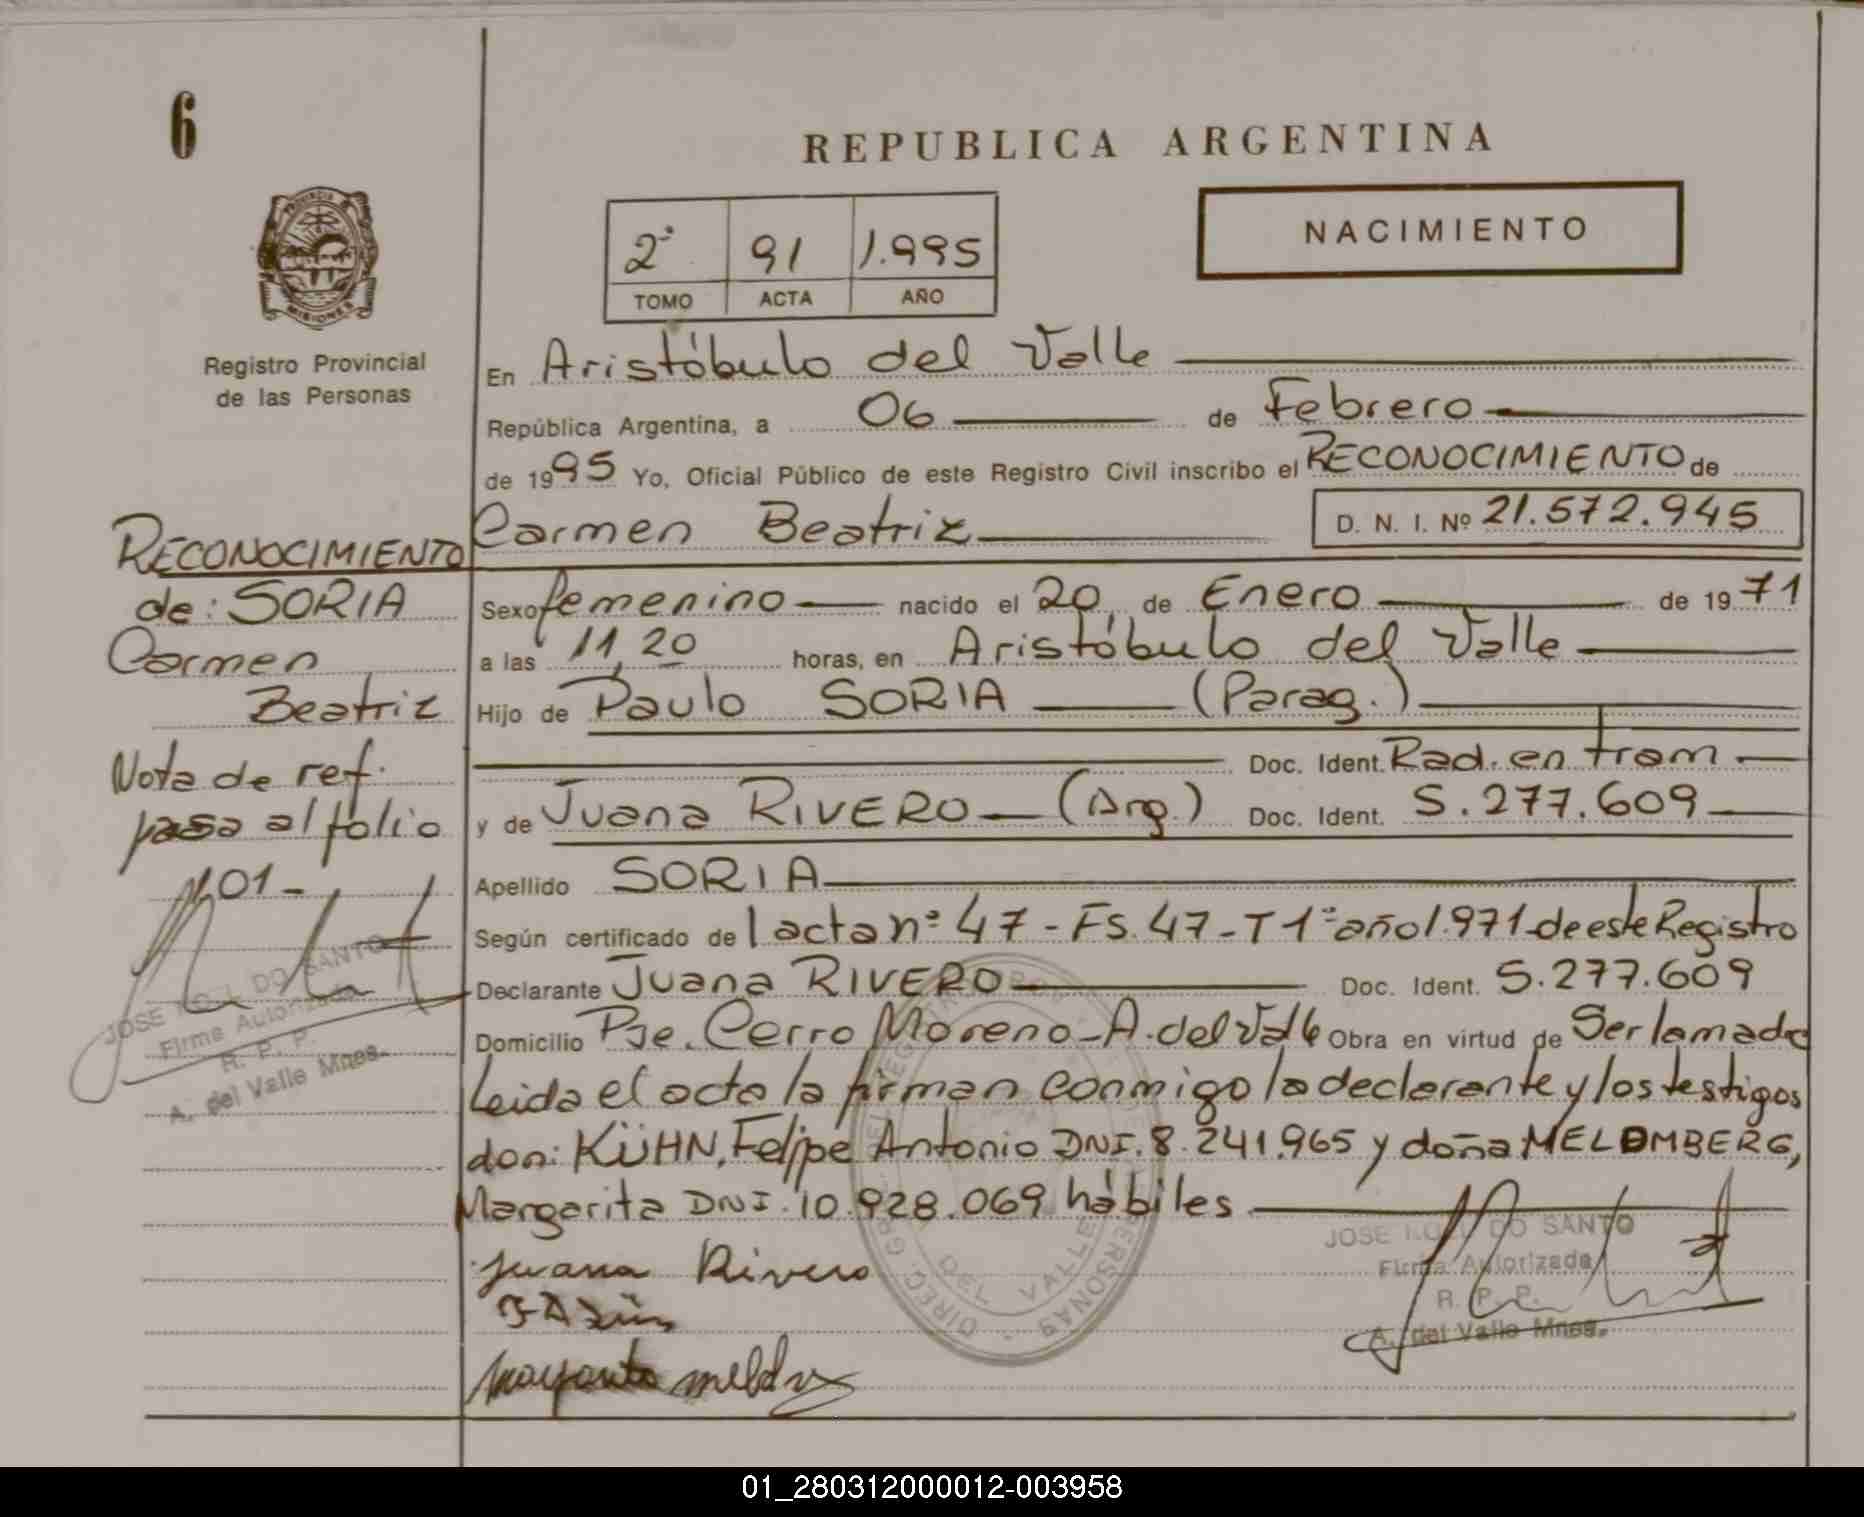 6
REPUBLICA ARGENTINA
NACIMIENTO
2º 91 1.995
TOMO ACTA AÑO
PROVINCIA
MISIONES
Registro Provincial
de las Personas
En Aristóbulo del Valle
República Argentina, a 06 de Febrero
de 1995 Yo, Oficial Público de este Registro Civil inscribo el RECONOCIMIENTO de
Carmen Beatriz D. N. I. Nº 21.572.945
RECONOCIMIENTO
de: SORIA
Carmen
Beatriz
Nota de ref.
pasa al folio
101-
JOSE NOEL DO SANTO
Firma Autorizada
R. P. P.
A. del Valle Mnes.
Sexo femenino nacido el 20 de Enero de 1971
a las 11,20 horas, en Aristóbulo del Valle
Hijo de Paulo SORIA (Parag.)
Doc. Ident. Rad. en tram
y de Juana RIVERO (Arg.) Doc. Ident. 5.277.609
Apellido SORIA
Según certificado de l acta nº 47 - Fs. 47 - T 1º año 1.971 de este Registro
Declarante Juana RIVERO Doc. Ident. 5.277.609
Domicilio Pje. Cerro Moreno - A. del Valle Obra en virtud de Ser la madre
Leida el acta la firman conmigo la declarante y los testigos
don: KÜHN, Felipe Antonio DNI. 8.241.965 y doña MELDMBERG,
Margarita DNI. 10.928.069 hábiles
Juana Rivero
JOSE NOEL DO SANTO
Firma Autorizada
R. P. P.
A. del Valle Mnes.
DEL VALLE
01_280312000012-003958